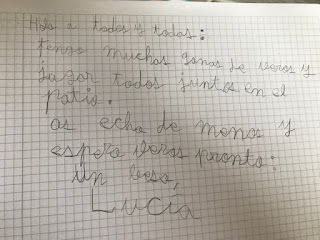 Hola a todos y todas:
tengo muchas ganas de veros y
jugar todos juntos en el
patio.
os echo de menos y
espero veros pronto:
un beso,
Lucía